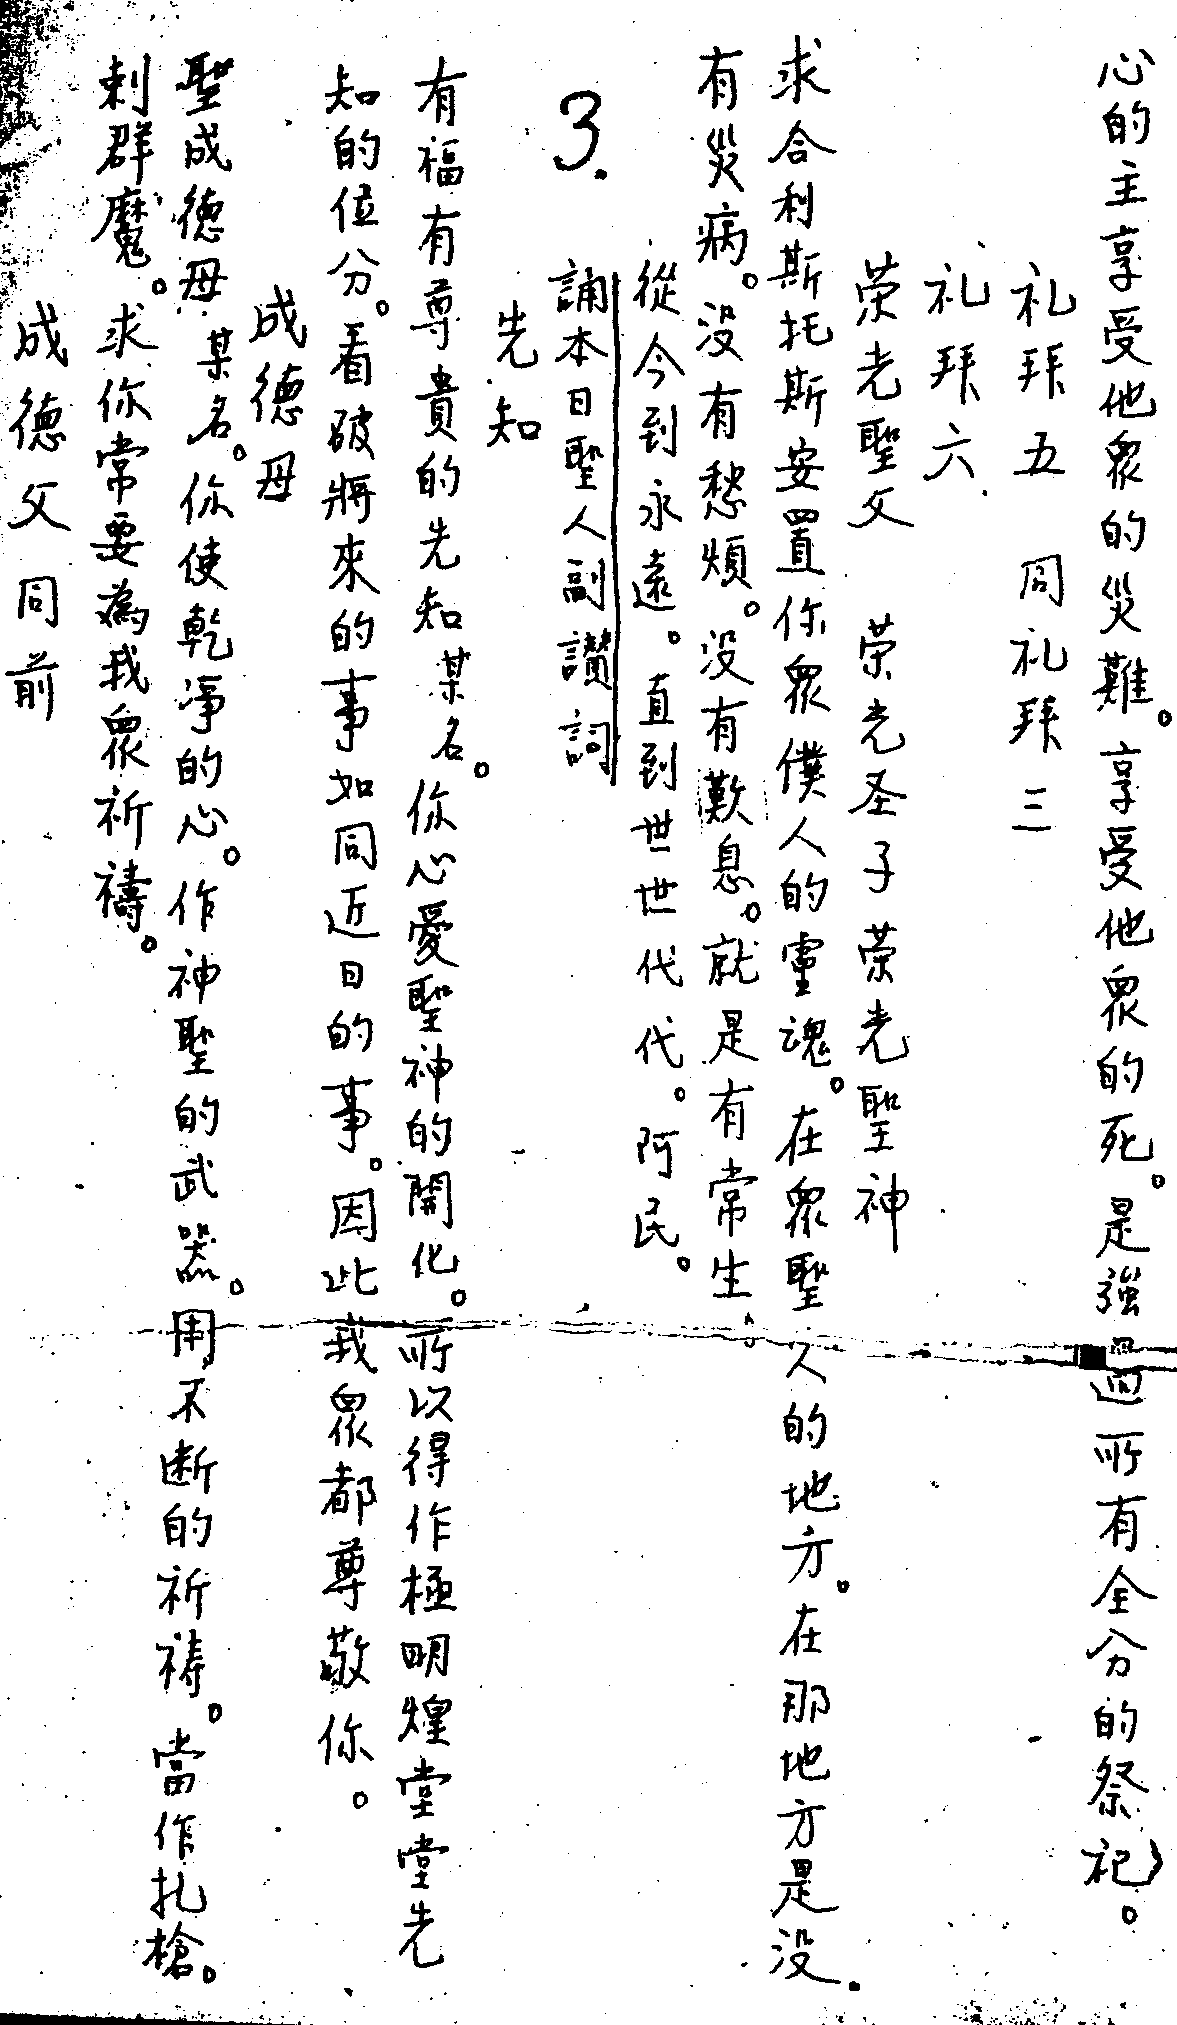 心的主享受他眾的災難。享受他眾的死。是強過所有全分的祭祀。
礼拜五 同礼拜三
礼拜六
荣光聖父 荣光圣子荣光聖神
求合利斯托斯安置你眾僕人的靈魂。在眾聖人的地方。在那地方是没
有災病。没有愁煩。没有歎息。就是有常生。
從今到永遠。直到世世代代。阿民。
3. 誦本日聖人副讃詞
先知
有福有尊貴的先知某名。你心愛聖神的開化。所以得作極明煌堂堂先
知的位分。看破將來的事如同近日的事。因此我眾都尊敬你。
成德母
聖成德母某名。你使乾淨的心。作神聖的武器。用不断的祈祷。當作扎槍。
刺群魔。求你常要為我眾祈禱。
成德父同前